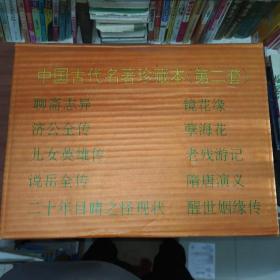 中国古代名著珍藏本(第二套)
聊斋志异 镜花缘
济公全传 孽海花
儿女英雄传 老残游记
说岳全传 隋唐演义
二十年目睹之怪现状 醒世姻缘传